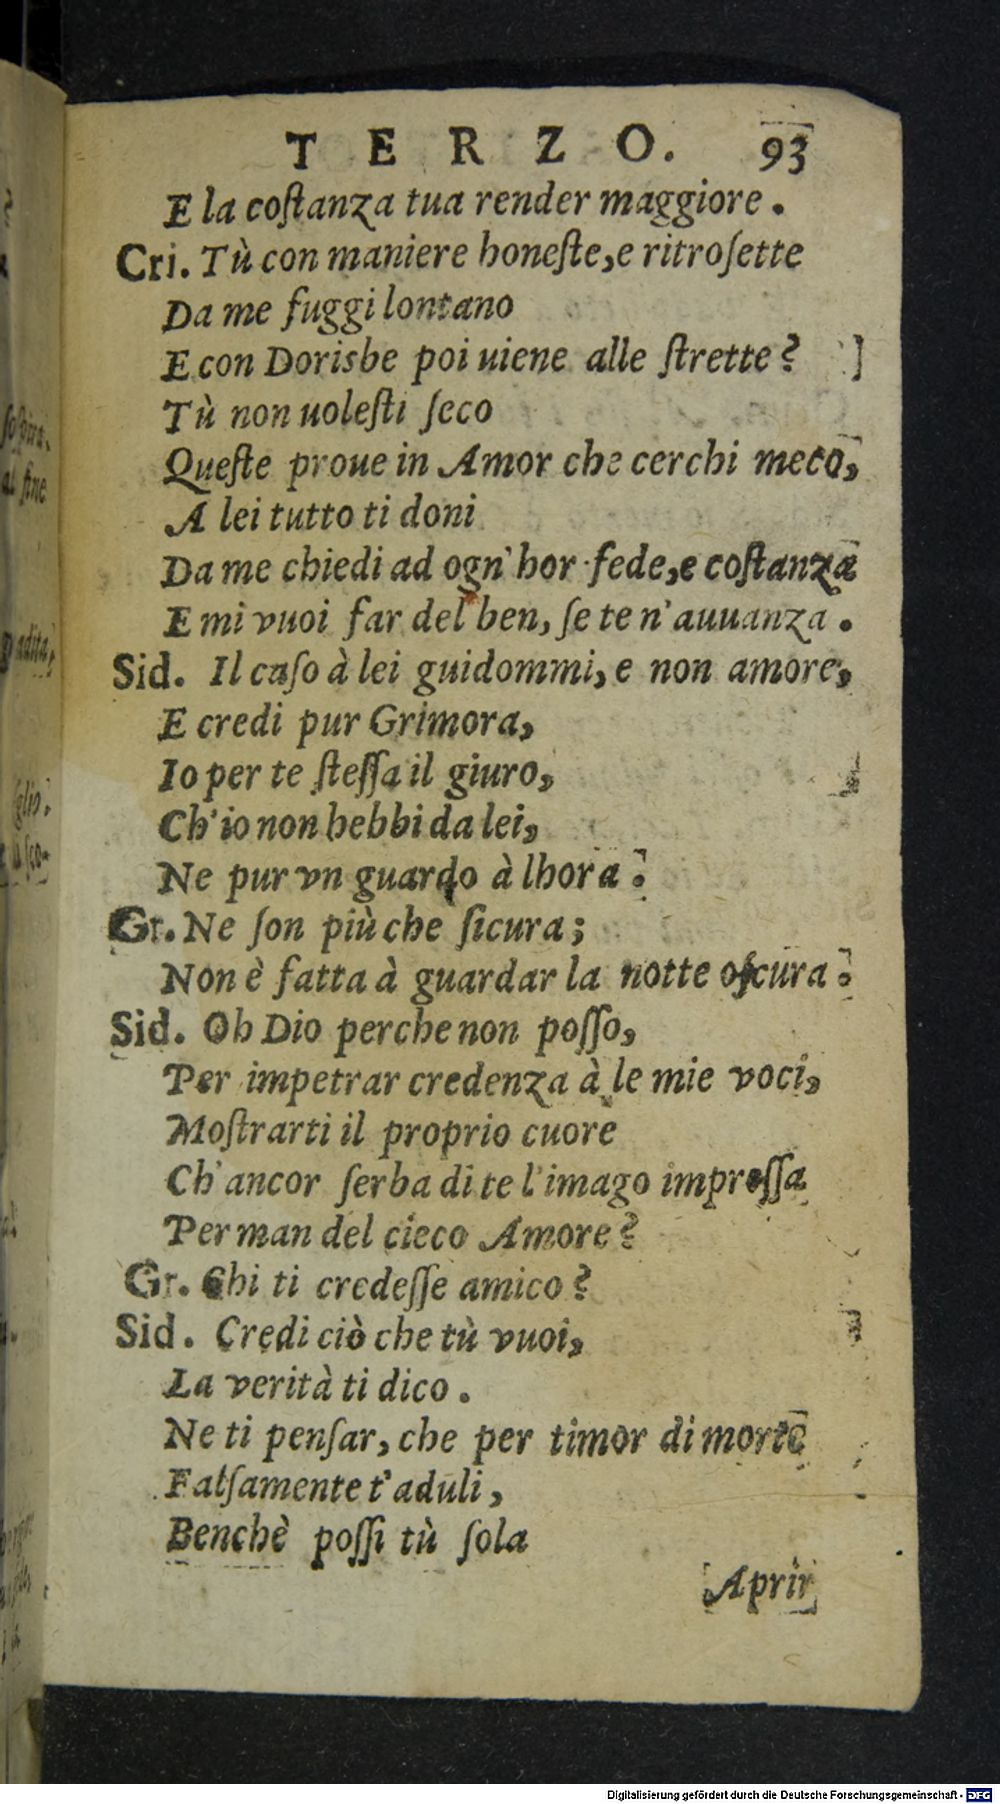 TERZO. 93
E la coſtanza tua render maggiore.
Cri. Tù con maniere honeſte, e ritroſette
Da me fuggi lontano
E con Dorisbe poi uiene alle ſtrette?
Tù non uoleſti ſeco
Queſte proue in Amor che cerchi meco,
A lei tutto ti doni
Da me chiedi ad ogn'hor fede, e coſtanza
E mi vuoi far del ben, ſe te n'auuanza.
Sid. Il caſo à lei guidommi, e non amore,
E credi pur Grimora,
Io per te ſteſſa il giuro,
Ch'io non hebbi da lei,
Ne pur vn guardo à lhora.
Gr. Ne ſon più che ſicura;
Non è fatta à guardar la notte oſcura.
Sid. Oh Dio perche non poſſo,
Per impetrar credenza à le mie voci,
Moſtrarti il proprio cuore
Ch'ancor ſerba di te l'imago impreſſa
Per man del cieco Amore?
Gr. Chi ti credeſſe amico?
Sid. Credi ciò che tù vuoi,
La verità ti dico.
Ne ti penſar, che per timor di morte
Falſamente t'aduli,
Benchè poſſi tù ſola
Aprir
Digitalisierung gefördert durch die Deutsche Forschungsgemeinschaft - DFG